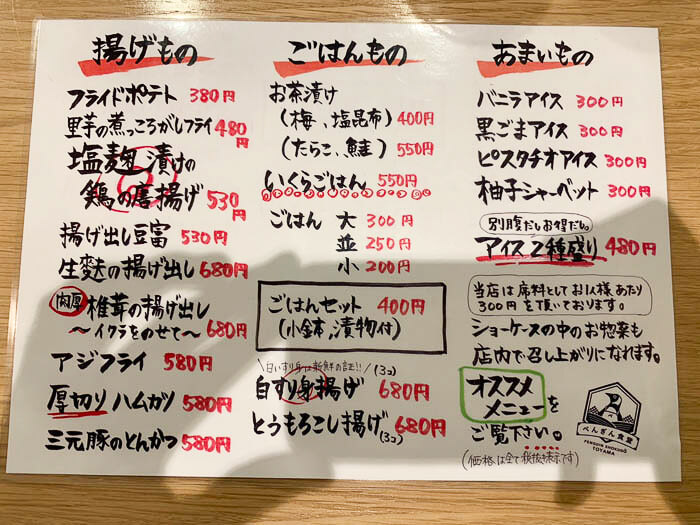 揚げもの
フライドポテト 380円
里芋の煮っころがしフライ 480円
塩麹漬けの
鶏の唐揚げ 530円
揚げ出し豆富 530円
生麩の揚げ出し 680円
肉厚 椎茸の揚げ出し
〜イクラをのせて〜 680円
アジフライ 580円
厚切りハムカツ 580円
三元豚のとんかつ 580円
ごはんもの
お茶漬け
(梅、塩昆布) 400円
(たらこ、鮭) 550円
いくらごはん 550円
ごはん 大 300円
並 250円
小 200円
ごはんセット 400円
(小鉢、漬物付)
白いすり身は新鮮の証!!
白すり身揚げ(3コ) 680円
とうもろこし揚げ(3コ) 680円
あまいもの
バニラアイス 300円
黒ごまアイス 300円
ピスタチオアイス 300円
柚子シャーベット 300円
別腹だしお得だし。
アイス2種盛り 480円
当店は席料としてお1人様あたり
300円を頂いております。
ショーケースの中のお惣菜も
店内で召し上がりになれます。
オススメ
メニューを
ご覧下さい。
(価格は全て税抜き表示です)
ぺんぎん食堂
PENGUIN SHOKUDO
TOYAMA